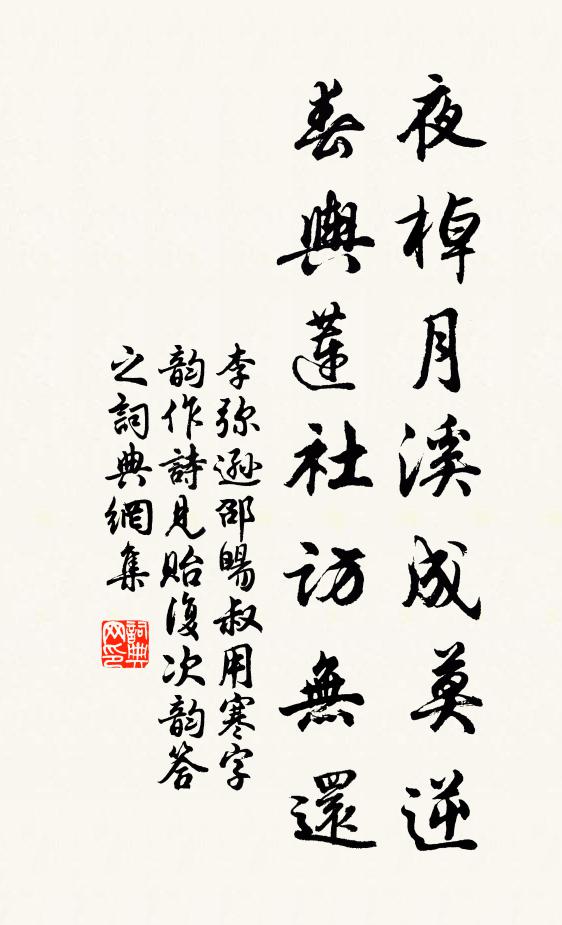 夜棹月溪成莫逆
春輿蓮社訪無還
李弥遜邵暘叔用寒字
韵作詩見貽復次韵答
之詞典網集
詞典网印